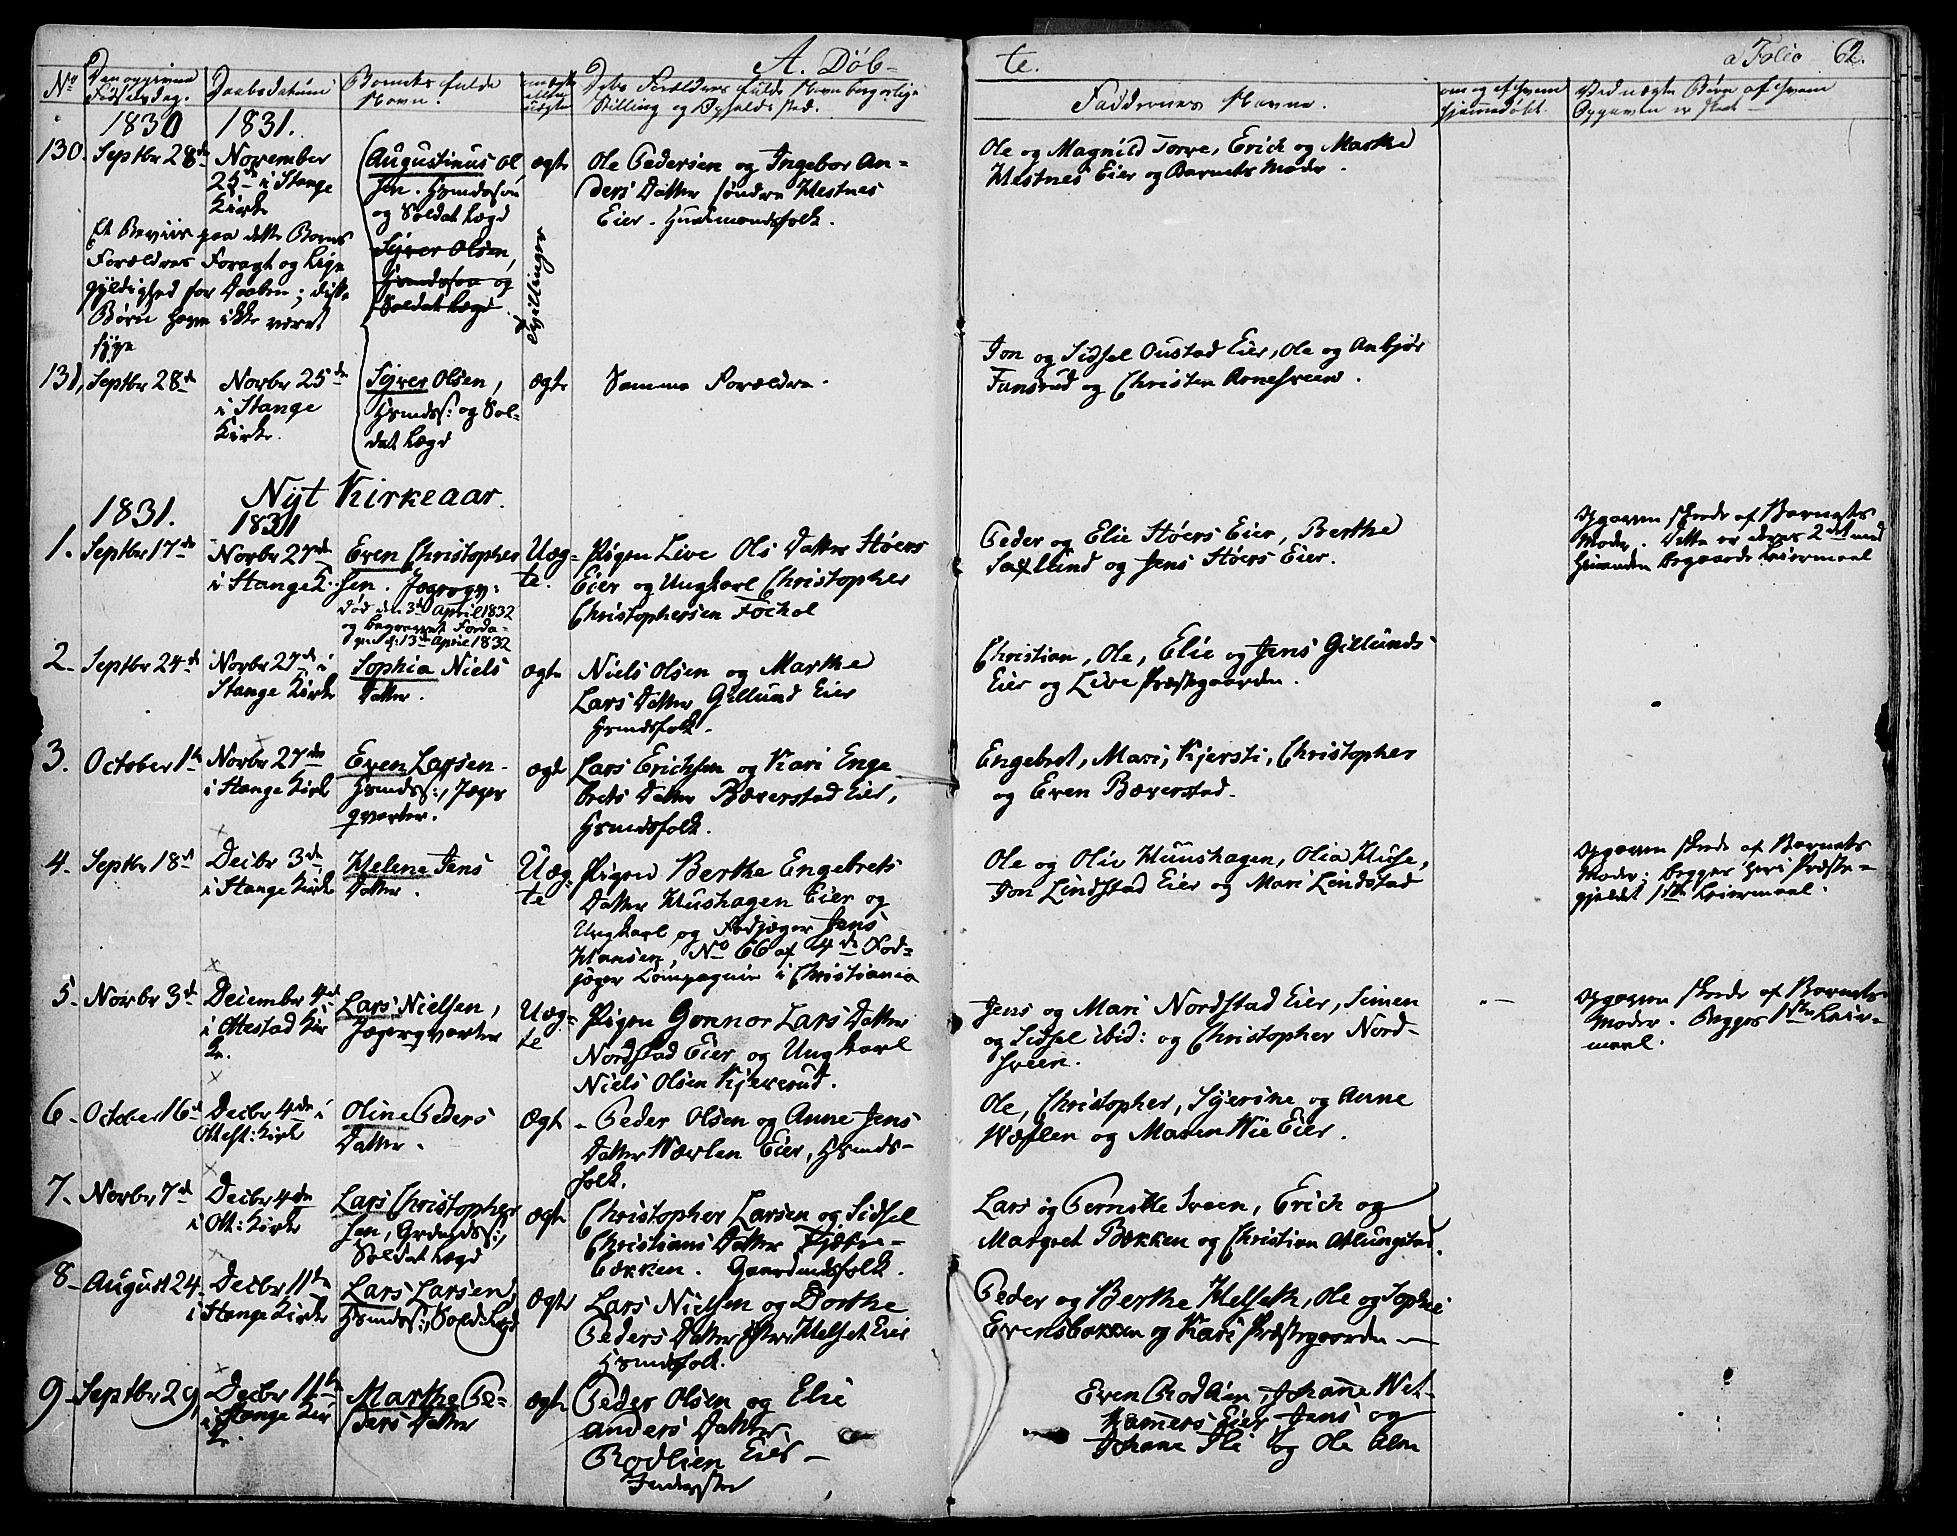 A. Døb-
te.
a Folio 62.
No
Den opgivne Fødselsdag.
Daabsdatum
Barnets fulde Navn.
Faddernes Navne.
1830 1831.
130. Septbr 28de November 25de i Stange Kirke
Augustinus Ol
sen. Hsmdssøn
og Soldat Lægd
ægte
Ole Pedersen og Ingebor An-
ders Datter søndre Hestnes
Eier. Huusmandsfolk.
Ole og Magnild Torve, Erich og Marthe
Hestnes Eier og Barnets Moder.
Et Beviis paa dette Barns
Forældres Foragt og Lige
gyldighed for Daaben; disse
Børn have ikke været
syge
Syver Olsen,
Hsmdssøn og
Soldat Lægd.
Tvillinger
131, Septbr 28de
Novbr 25de
i Stange
Kirke.
Syver Olsen,
Hsmdss: og Sol-
dat Lægd
ægte
Samme Forældre.
Jon og Sidsel Oustad Eier, Ole og Anbjør
Funsrud og Christen Arnesveen.
Nyt Kirkeaar.
1831. 1831
1. Septbr 17de
Novbr 27de
i Stange K.
Even Christopher
sen. Jægerqv:
død den 3de April 1832
og begravet
13de April 1832
Uæg-
te.
Pigen Live Ols Datter Støers
Eier og Ungkarl Christopher
Christophersen Fockol
Peder og Elie Støers Eier, Berthe
Saxlund og Jens Støers Eier.
Opgaven skede af Barnets
Moder. Dette er deres 2det med
hinanden begaaede Leiermaal
2- Septbr 24de
Novbr 27de i
Stange Kirke
Sophia Niels
Datter.
ægte
Niels Olsen og Marthe
Lars Datter Gillund Eier
Hsmdsfolk.
Christian, Ole, Elie og Jens Gillunds
Eier og Live Præstgaarden.
3. October 1te
Novbr 27de
i Stange Kirke
Even Larsen-
Hsmdss:, Jæger
qvarter.
ægte
Lars Erichsen og Kari Enge
brets Datter Bæverstad Eier,
Hsmdsfolk.
Engebret, Mari, Kjersti, Christopher
og Even Bæverstad.
4- Septbr 18de
Decbr 3de
i Stange Kirke
Helene Jens
Datter.
Uæg-
te
Pigen Berthe Engebrets
Datter Huushagen Eier og
Ungkarl og Fodjæger Jens
Hansen, No 66 af 4de Fod-
jæger Compagnie i Christiania
Ole og Olie Huushagen, Olia Huse,
Jon Lindstad Eier og Mari Lindstad
Opgaven skede af Barnets
Moder; begges her i Præste-
gjeldet 1ste Leiermaal.
5- Novbr 3de
December 4de
i Ottestad Kir
ke.
Lars Nielsen,
Jægerqvarter
Uæg-
te
Pigen Gonnor Lars Datter
Nordstad Eier og Ungkarl
Niels Olsen Kjeverud.
Jens og Mari Nordstad Eier, Simen
og Sidsel ibid: og Christopher Nord-
sveen.
Opgaven skede af Barnets
Moder. Begges 1ste Leier-
maal.
6- October 16de
Decbr 4de i
Ottest: Kirke
Oline Peders
Datter.
Ægte
- Peder Olsen og Anne Jens
Datter Wæhlen Eier, Hsmds-
folk.
Ole, Christopher, Syverine og Anne
Wæhlen og Maren Wie Eier.
7- Novbr 7de
Decbr 4de
i Ott: Kirke
Lars Christopher
sen, Grdmdss:,
Soldat Lægd
ægte
Christopher Larsen og Sidsel
Christians Datter Fjætre-
bækken. Gaardmdsfolk.
Lars og Pernille Sveen, Erich og
Margret Bækken og Christian Atlungstad.
8- August 24.
Decbr 11te
i Stange Kirke
Lars Larsen,
Hsmdss:, Sold: Lægd
Ægte
Lars Nielsen og Dorthe
Peders Datter Helset Eier
Hsmdsfolk.
Peder og Berthe Helseth, Ole og Sophie
Evensbakken og Kari Præstegaarden -
9- Septbr 29,
Decbr 11te
i Stange Kir
ke.
Marthe Pe-
ders Datter
ægte
Peder Olsen og Elie
Anders Datter
Rodlien Eier -
Inderster
Even Rodlien, Johanne Wel-
hamers Eier Jens og
Johane Ile og Ole Alm